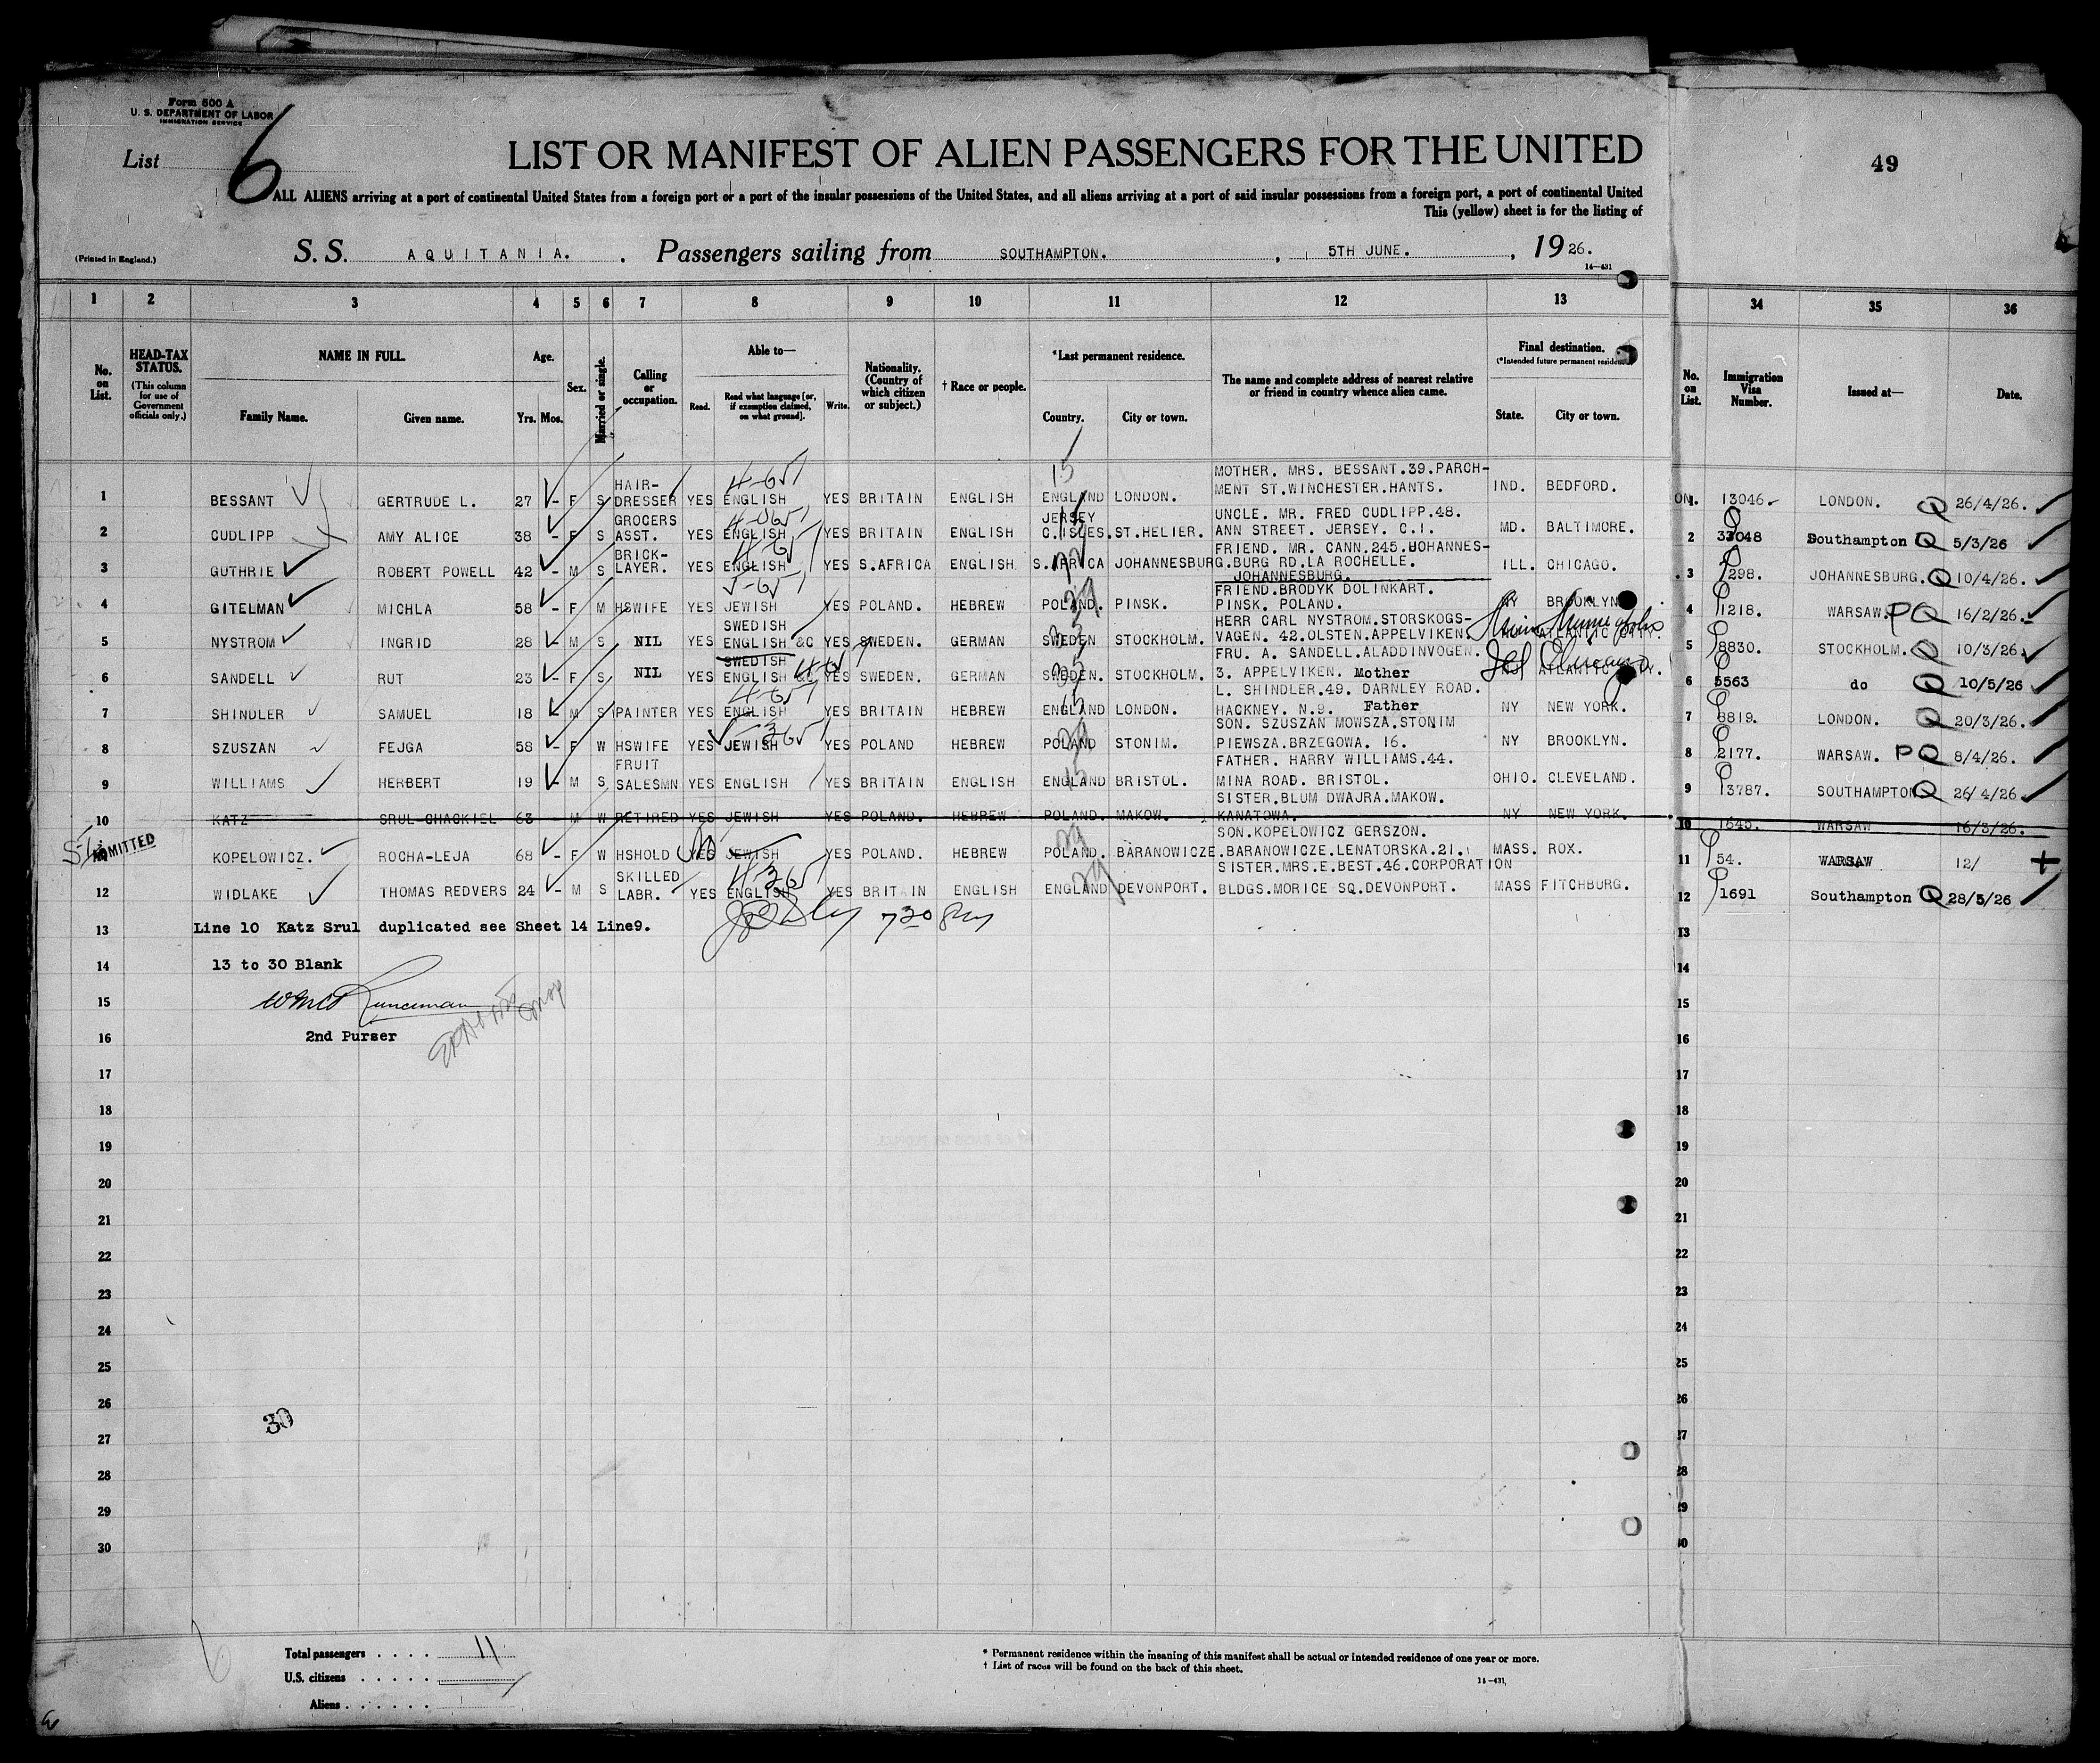 Form 500 A
U. S. DEPARTMENT OF LABOR
IMMIGRATION SERVICE
List 6
LIST OR MANIFEST OF ALIEN PASSENGERS FOR THE UNITED
49
ALL ALIENS arriving at a port of continental United States from a foreign port or a port of the insular possessions of the United States, and all aliens arriving at a port of said insular possessions from a foreign port, a port of continental United
This (yellow) sheet is for the listing of
(Printed in England.)
S. S. AQUITANIA. . Passengers sailing from SOUTHAMPTON. , 5TH JUNE. , 19 26.
14—431
1 2 3 4 5 6 7 8 9 10 11 12 13 34 35 36
No. on List.
HEAD-TAX STATUS.
(This column for use of Government officials only.)
NAME IN FULL.
Family Name. Given name.
Age.
Yrs. Mos.
Sex.
Married or single.
Calling or occupation.
Able to—
Read. Read what language [or, if exemption claimed, on what ground]. Write.
Nationality. (Country of which citizen or subject.)
† Race or people.
*Last permanent residence.
Country. City or town.
The name and complete address of nearest relative or friend in country whence alien came.
Final destination.
(*Intended future permanent residence.)
State. City or town.
No. on List.
Immigration Visa Number.
Issued at—
Date.
HAIR- MOTHER. MRS. BESSANT.39.PARCH-
1 BESSANT GERTRUDE L. 27 - F S DRESSER YES ENGLISH YES BRITAIN ENGLISH ENGLAND LONDON. MENT ST.WINCHESTER.HANTS. IND. BEDFORD. 13046. LONDON. Q 26/4/26.
GROCERS JERSEY UNCLE. MR. FRED CUDLIPP.48.
2 CUDLIPP AMY ALICE 38 - F S ASST. YES ENGLISH YES BRITAIN ENGLISH C.ISLES. ST.HELIER. ANN STREET. JERSEY. C.I. MD. BALTIMORE. 2 Southampton Q 5/3/26
BRICK- FRIEND. MR. CANN.245.JOHANNES-
3 GUTHRIE ROBERT POWELL 42 - M S LAYER. YES ENGLISH YES S.AFRICA ENGLISH S.AFRICA JOHANNESBURG. BURG RD.LA ROCHELLE. ILL. CHICAGO. 3 298. JOHANNESBURG. Q 10/4/26.
JOHANNESBURG.
FRIEND.BRODYK DOLINKART.
4 GITELMAN MICHLA 58 - F M HSWIFE YES JEWISH YES POLAND. HEBREW POLAND. PINSK. PINSK. POLAND. NY BROOKLYN 4 1218. WARSAW. PQ 16/2/26.
SWEDISH HERR CARL NYSTROM.STORSKOGS-
5 NYSTROM INGRID 28 - M S NIL YES ENGLISH &C YES SWEDEN. GERMAN SWEDEN STOCKHOLM. VAGEN. 42.OLSTEN.APPELVIKEN. ATLANTIC CITY. 5 8830. STOCKHOLM. Q 10/3/26.
SWEDISH FRU. A. SANDELL.ALADDINVOGEN.
6 SANDELL RUT 23 - F S NIL YES ENGLISH &C YES SWEDEN. GERMAN SWEDEN. STOCKHOLM. 3. APPELVIKEN. Mother ATLANTIC CITY. 6 5563 do Q 10/5/26
L. SHINDLER.49. DARNLEY ROAD.
7 SHINDLER SAMUEL 18 - M S PAINTER YES ENGLISH YES BRITAIN HEBREW ENGLAND LONDON. HACKNEY. N.9. Father NY NEW YORK. 7 8819. LONDON. Q 20/3/26.
SON. SZUSZAN MOWSZA.STONIM
8 SZUSZAN FEJGA 58 - F W HSWIFE YES JEWISH YES POLAND HEBREW POLAND STONIM. PIEWSZA.BRZEGOWA. 16. NY BROOKLYN. 8 2177. WARSAW. PQ 8/4/26.
FRUIT FATHER. HARRY WILLIAMS.44.
9 WILLIAMS HERBERT 19 - M S SALESMN YES ENGLISH YES BRITAIN ENGLISH ENGLAND BRISTOL. MINA ROAD. BRISTOL. OHIO. CLEVELAND. 9 13787. SOUTHAMPTON Q 26/4/26.
SISTER.BLUM DWAJRA.MAKOW.
10 KATZ SRUL CHACKIEL 63 M W RETIRED YES JEWISH YES POLAND. HEBREW POLAND. MAKOW. KANATOWA. NY NEW YORK. 10 1645. WARSAW 16/3/26.
ADMITTED SON.KOPELOWICZ GERSZON.
KOPELOWICZ. ROCHA-LEJA 68 - F W HSHOLD YES JEWISH YES POLAND. HEBREW POLAND. BARANOWICZE. BARANOWICZE.LENATORSKA.21. MASS. ROX. 11 54. WARSAW 12/
SKILLED SISTER.MRS.E.BEST.46.CORPORATION
12 WIDLAKE THOMAS REDVERS 24 - M S LABR. YES ENGLISH YES BRITAIN ENGLISH ENGLAND DEVONPORT. BLDGS.MORICE SQ.DEVONPORT. MASS FITCHBURG. 12 1691 Southampton Q 28/5/26
13 Line 10 Katz Srul duplicated see Sheet 14 Line9. 13
14 13 to 30 Blank 14
15 Runciman 15
16 2nd Purser 16
17 17
18 18
19 19
20 20
21 21
22 22
23 23
24 24
25 25
26 26
30
27 27
28 28
29 29
30 30
Total passengers . . . . 11
U.S. citizens . . . . .
Aliens . . . . . .
* Permanent residence within the meaning of this manifest shall be actual or intended residence of one year or more.
† List of races will be found on the back of this sheet.
14—431